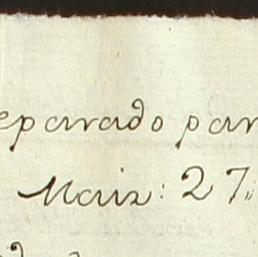 eparado par
Maiz: 27,,